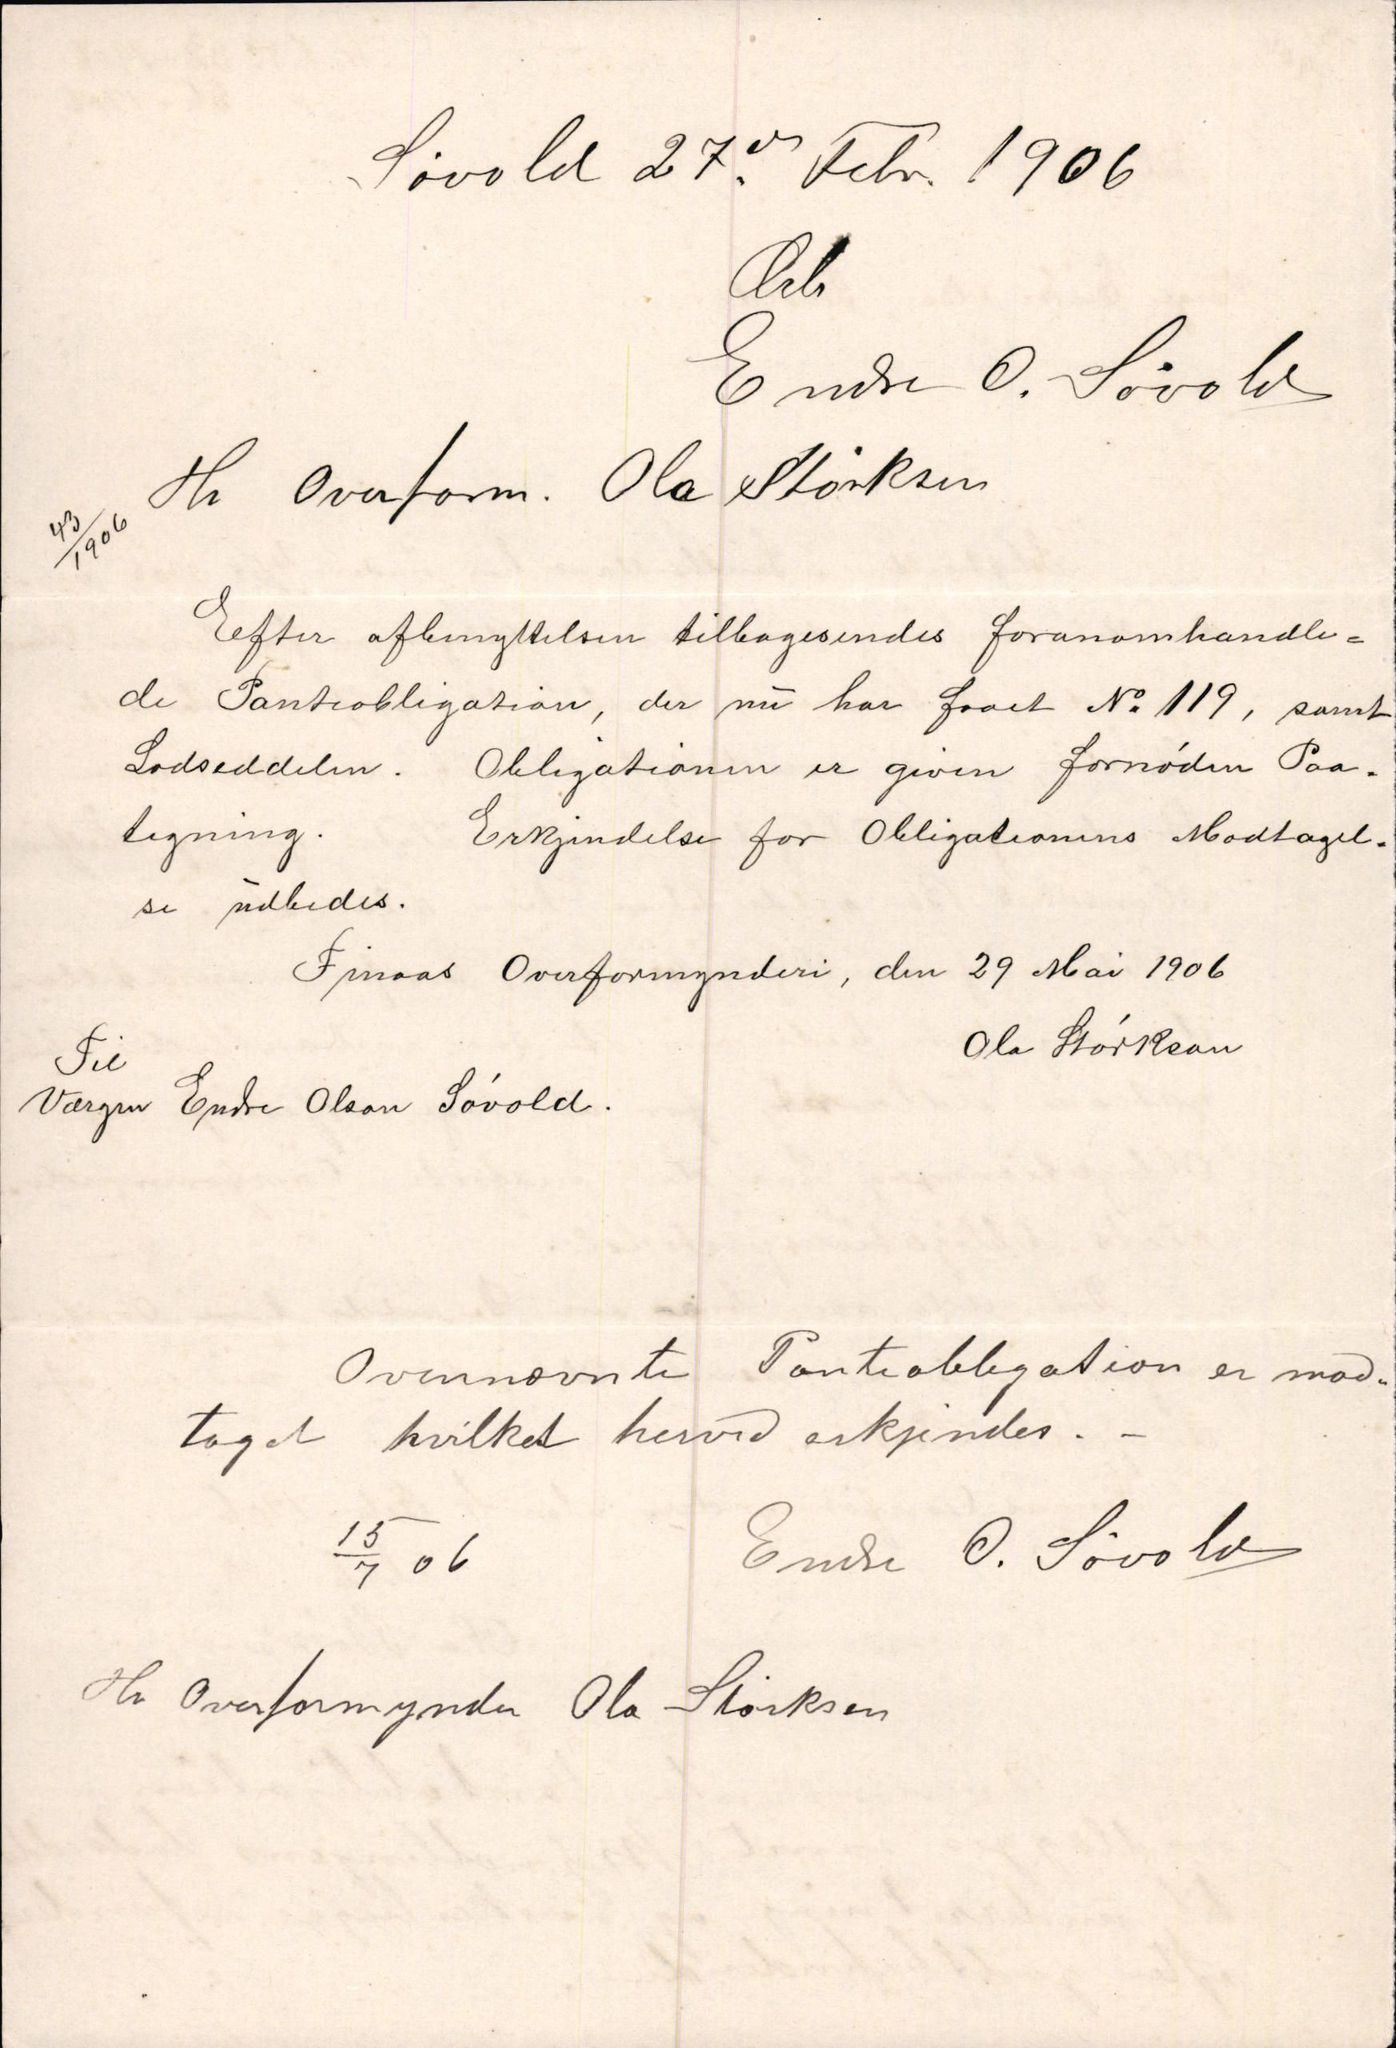 Søvold 27de Febr. 1906
Ærb
Endre O. Søvold
Hr Overform. Ola Størksen
43/1906
Eefter afbenyttelsen tilbagesendes foranomhandle=
de Panteobligation, der nu har faaet No 119, samt
Lodseddelen. Obligationen er given fornøden Paa-
tegning. Erkjendelse for Obligationens Modtagel-
se udbedes.
Finaas Overformynderi, den 29 Mai 1906
Ola Størkson
Til
Værgen Endre Olson Søvold.
Ovennævnte Panteobligation er mod-
taget hvilket herved erkjendes. -
15/7 06 Endre O. Søvold
Hr Overformynder Ola Størksen